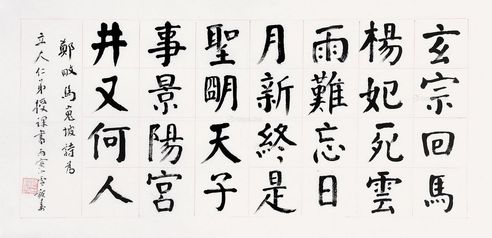 玄宗回馬
楊妃死雲
雨難忘日
月新終是
聖眀天子
事景陽宮
井又何人
鄭畋馬嵬坡詩為
立人仁弟授課書丙寅